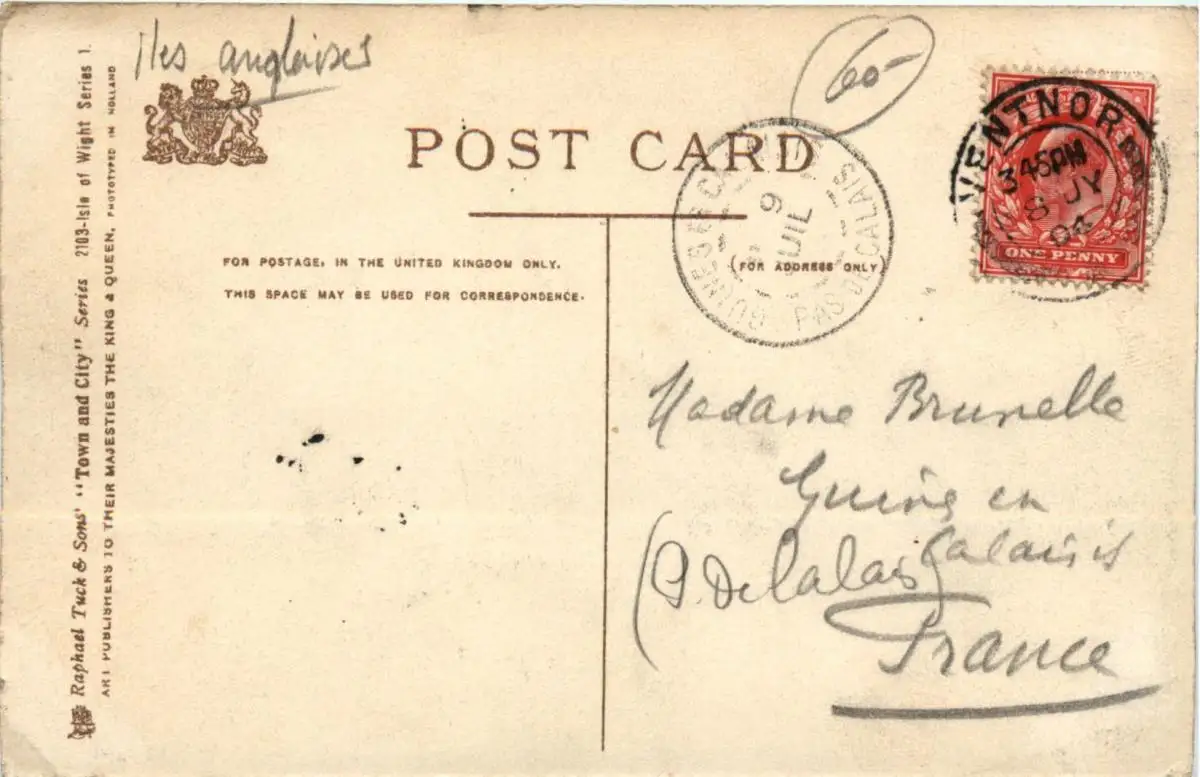 Iles anglaises
60-
POST CARD
VENTNOR
3 45PM
8 JY
04
ONE PENNY
GUINES
9
JUIL
PAS DE CALAIS
FOR POSTAGE, IN THE UNITED KINGDOM ONLY.
THIS SPACE MAY BE USED FOR CORRESPONDENCE.
(FOR ADDRESS ONLY)
Madame Brunelle
Guine en
Calaisis
(P. De Calais)
France
Raphael Tuck & Sons' "Town and City" Series 2103-Isle of Wight Series 1.
ART PUBLISHERS TO THEIR MAJESTIES THE KING & QUEEN. PHOTOTYPED IN HOLLAND